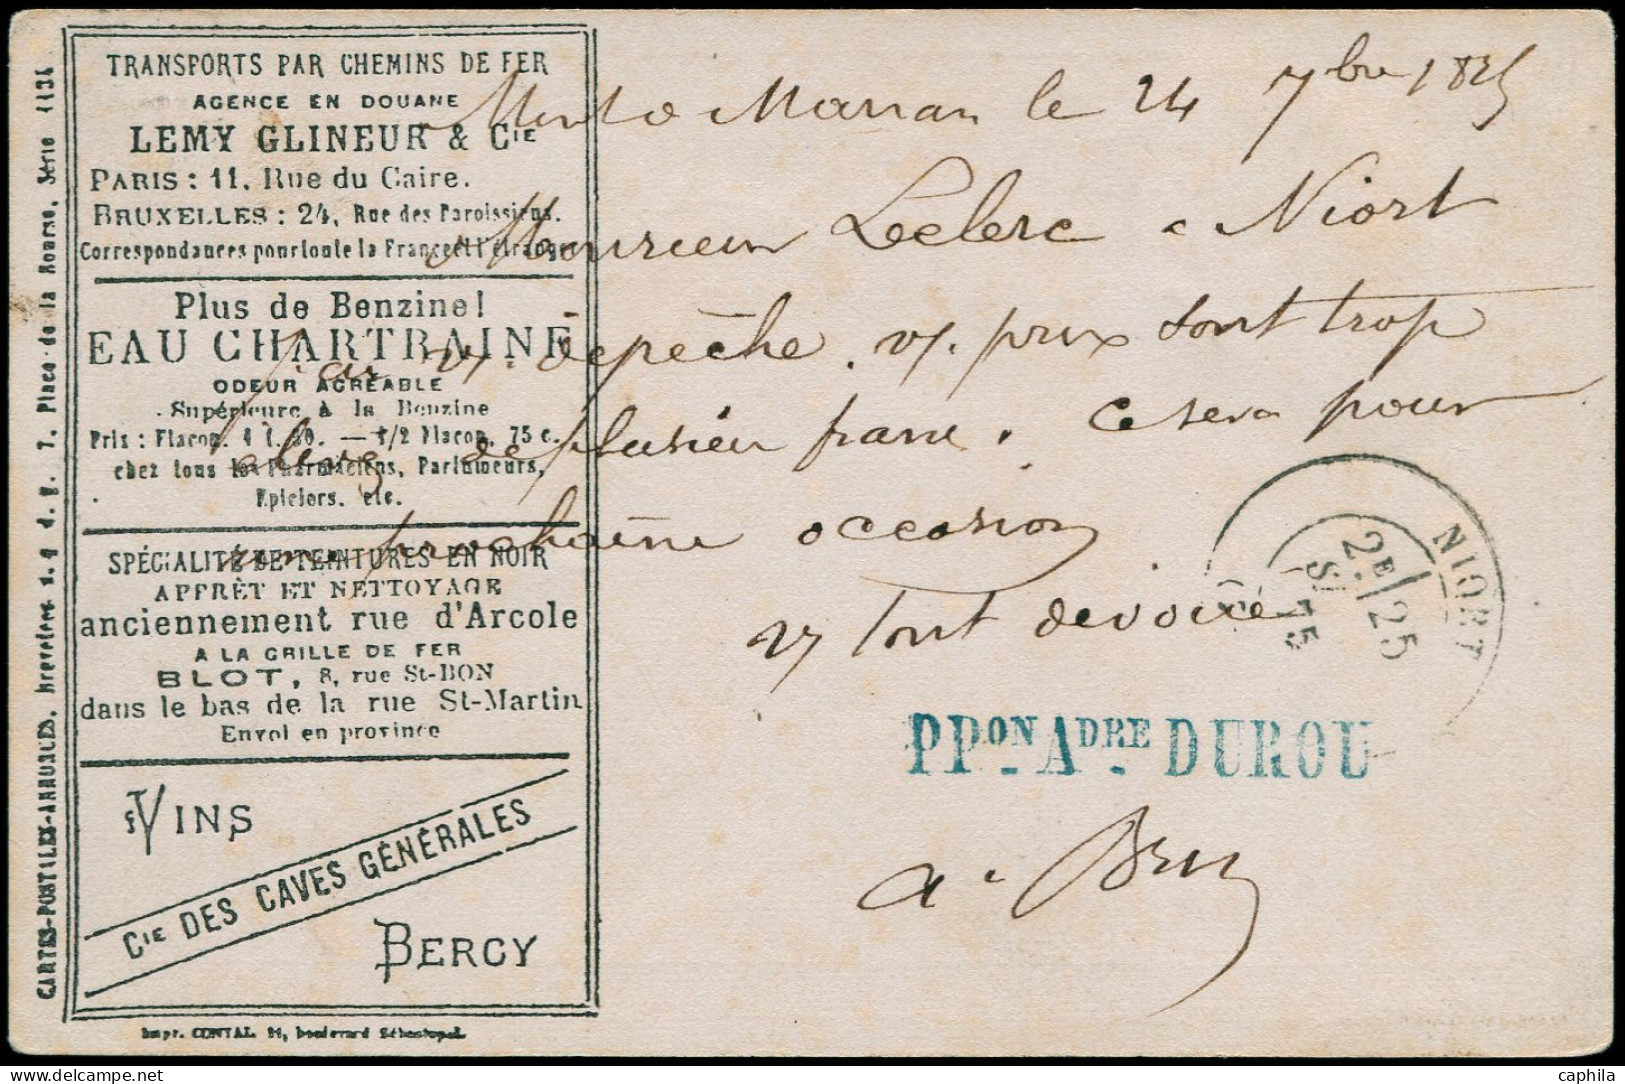 CARTES-POSTALES-ANNONCES, brevetées s. g. d. g. 7, Place de la Bourse, Série 1134
TRANSPORTS PAR CHEMINS DE FER
AGENCE EN DOUANE
LEMY GLINEUR & CIE
PARIS : 11, Rue du Caire.
BRUXELLES : 24, Rue des Paroissiens.
Correspondances pour toute la France et l'étranger
Plus de Benzine!
EAU CHARTRAINE
ODEUR AGRÉABLE
Supérieure à la Benzine
Prix : Flacon. 1 f. 30. — 1/2 Flacon, 75 c.
chez tous les Pharmaciens, Parfumeurs,
Epiciers, etc.
SPÉCIALITÉ DE TEINTURES EN NOIR
APPRÊT ET NETTOYAGE
anciennement rue d'Arcole
A LA GRILLE DE FER
BLOT, 8, rue St-BON
dans le bas de la rue St-Martin
Envoi en province
VINS
CIE DES CAVES GÉNÉRALES
BERCY
Impr. CONTAL 21, boulevard Sébastopol.
Mont de Marsan le 24 7bre 1875
Monsieur Leclerc à Niort
par v/. dépèche. v/. prix sont trop
élevés de plusieur franc. Ce sera pour
une prochaine occasion
v/ tout devoué
NIORT
2E / 25
SEPT 75
PPON ADRE DUROU
delcampe.net
caphila